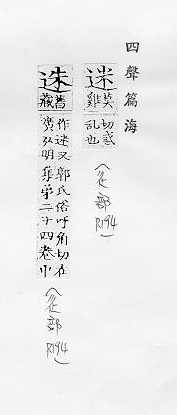 四聲篇海
迷莫雞切惑亂也(辵部 P194)
舊藏作迷又郭氏俗呼角切在廣弘明集第二十四卷(辵部 P194)